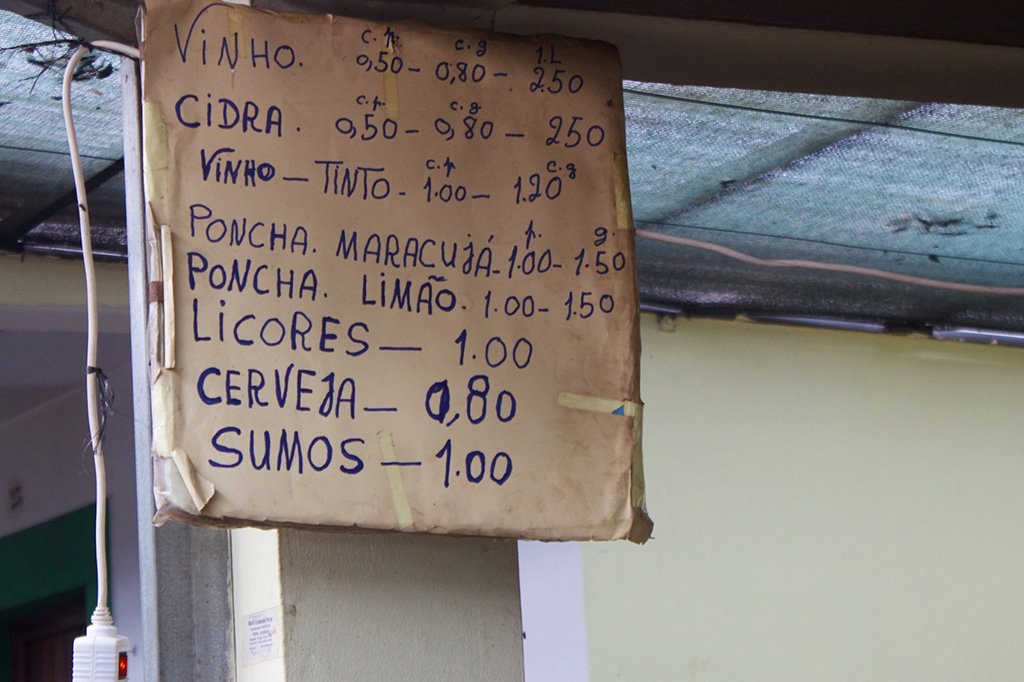 c.p. c.g 1.L
VINHO. 0,50 - 0,80 - 250
c.p. c.g
CIDRA. 0,50 - 0,80 - 250
c.p c.g
VINHO - TINTO - 1.00 - 1.20
p. g.
PONCHA. MARACUJÁ - 1.00 - 1.50
PONCHA. LIMÃO. 1.00 - 1.50
LICORES - 1.00
CERVEJA - 0,80
SUMOS - 1.00